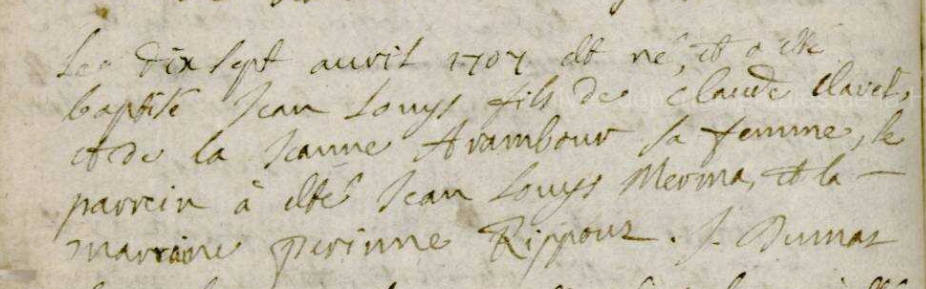 Le dix sept avril 1707 est né, et a esté
baptisé Jean Louys fils de Claude Clavel,
et de la Jeanne Arambour sa femme, le
parrein à esté Jean Louys Merma, et la
marraine perinne Rippour. J. Dumas